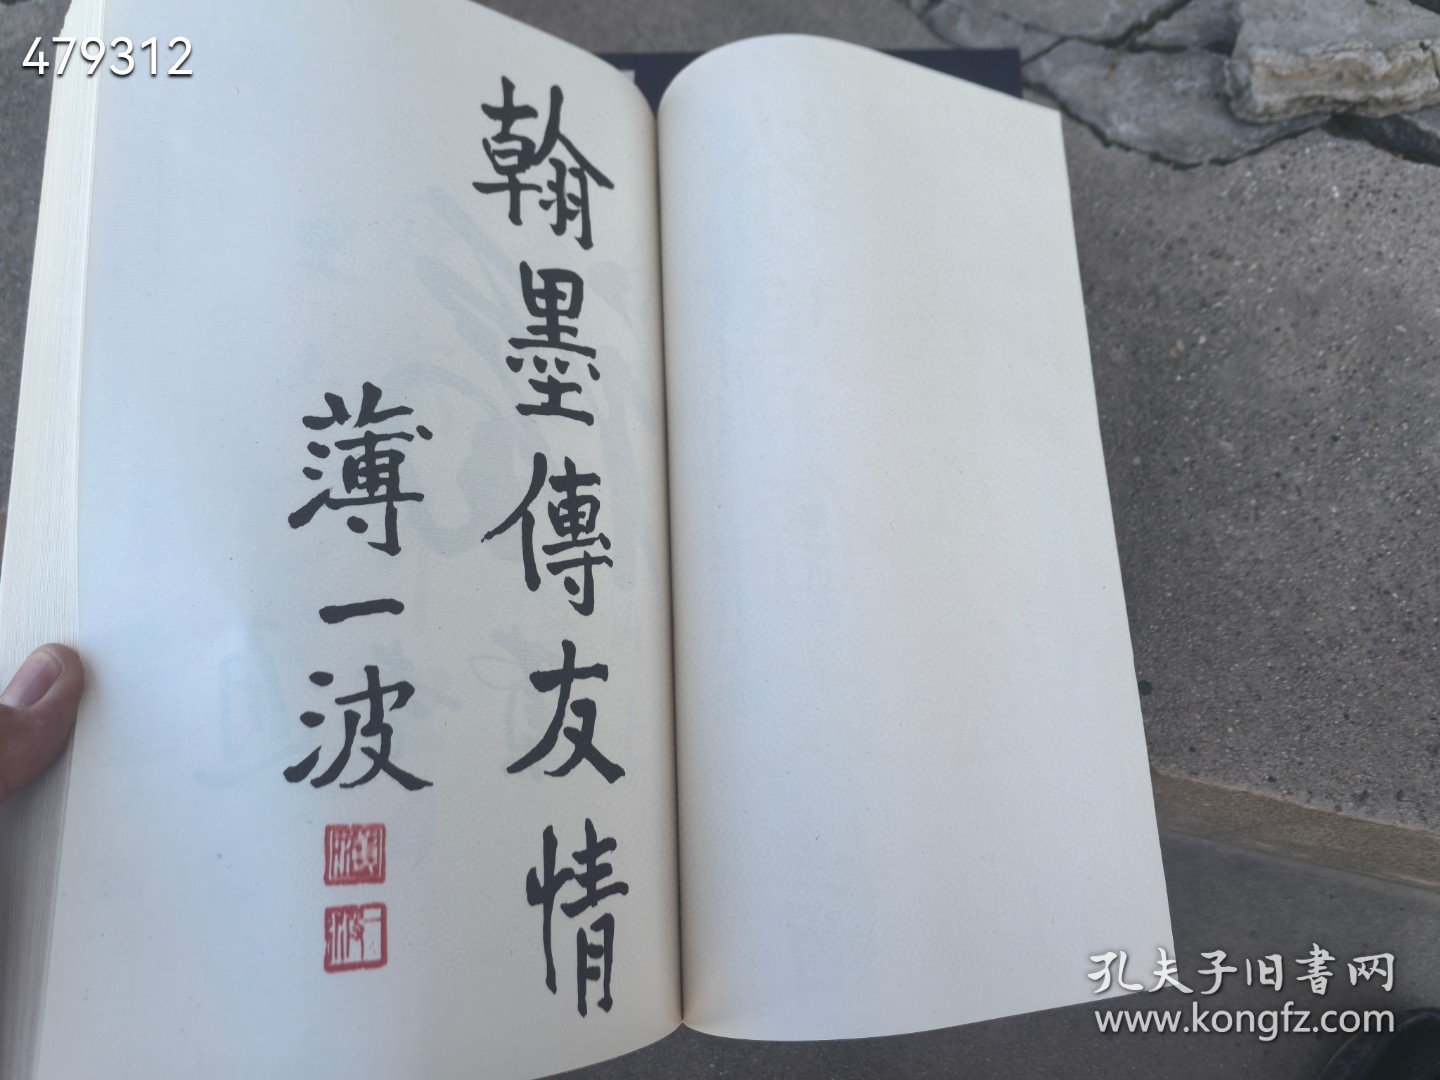 479312
翰墨傳友情
薄一波
孔夫子旧書网
www.kongfz.com